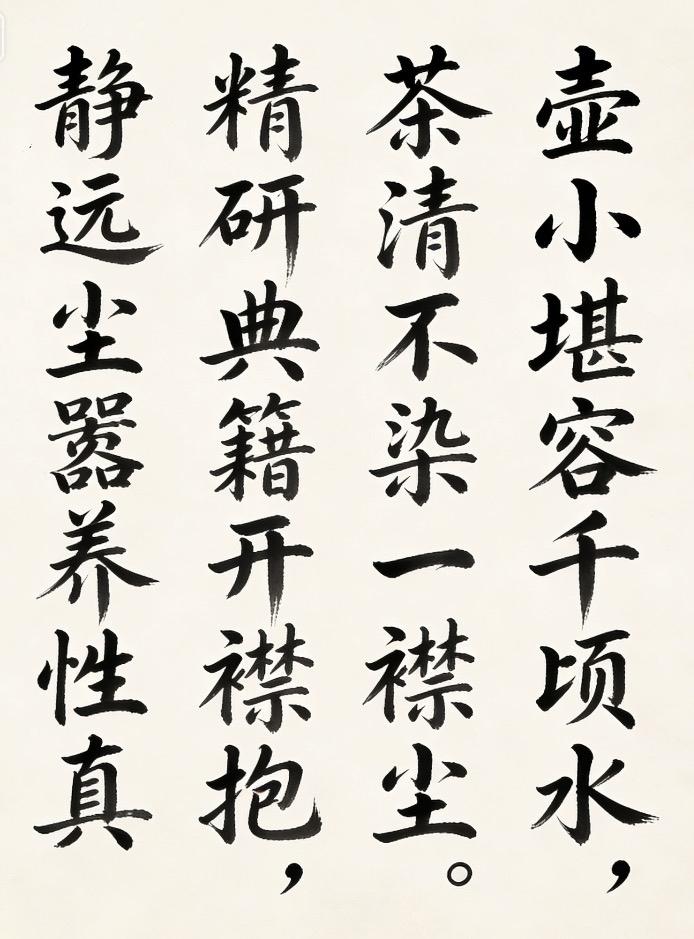 壶小堪容千顷水，
茶清不染一襟尘。
精研典籍开襟抱，
静远尘嚣养性真